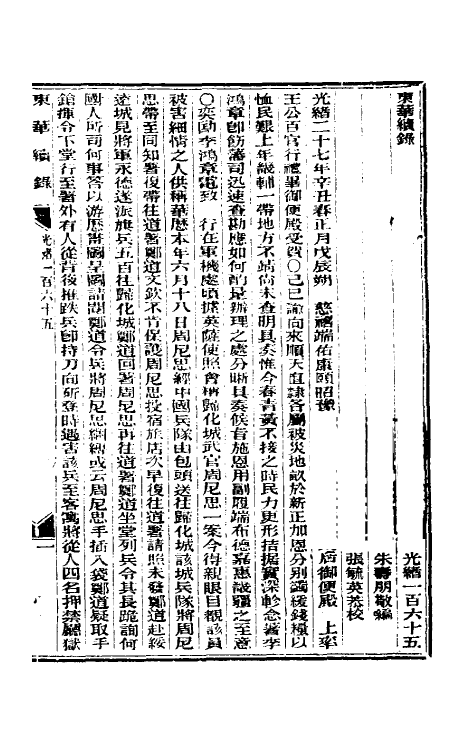 東華續錄
光緒一百六十五
朱壽朋敬編
張毓英恭校
光緒二十七年辛丑春正月戊辰朔　慈禧端佑康頤昭豫
后御便殿　上率
王公百官行禮畢御便殿受賀〇己巳諭向來順天直隸各屬被災地畝於新正加恩分別蠲緩錢糧以
恤民艱上年畿輔一帶地方不靖尚未查明具奏惟今春青黃不接之時民力更形拮据實深軫念著李
鴻章即飭藩司迅速查勘應如何酌量辦理之處分晰具奏候旨施恩用副履端布德嘉惠畿疆之至意
〇奕劻李鴻章電致　行在軍機處頃據英薩使照會稱歸化城武官周尼思一案今得親眼目覩該員
被害細情之人供稱華曆本年六月十八日周尼思經中國兵隊由包頭送往歸化城該城兵隊將周尼
思帶至同知署復帶往道署鄭道文欽不肯保護周尼思投宿旅店次早復往道署請照未發鄭道赴綏
遠城見將軍永德遂派旗兵五百往歸化城鄭道回署周尼思再往道署鄭道坐堂列兵令其長跪詢何
國人所司何事答以游歷舊國呈國請湖鄭道令兵將周尼思綑縛或云周尼思手插入袋鄭道疑取手
鎗揮令下堂行至署外有人從背後推跌兵即持刀向斫登時遇害該兵至客寓將從人四名押禁廳獄
東華續錄
光緒一百六十五
一